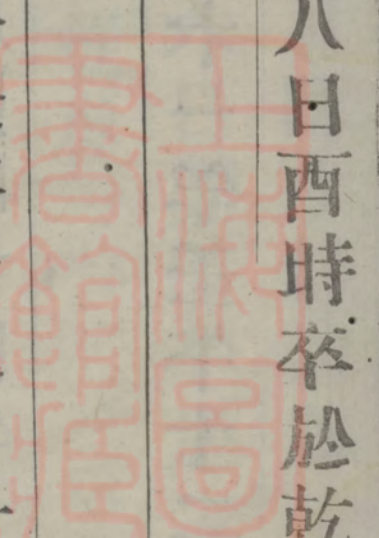 八日酉時卒於乾
上海圖書館藏